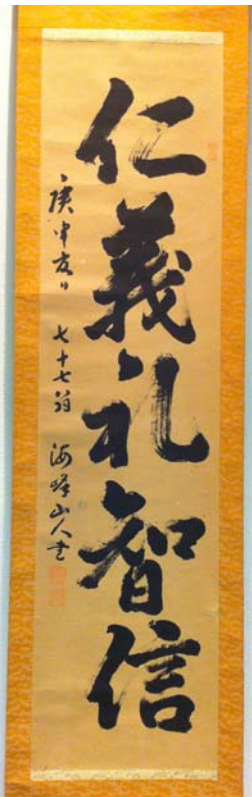 仁義礼智信
庚申夏日 七十七翁 海峰山人書